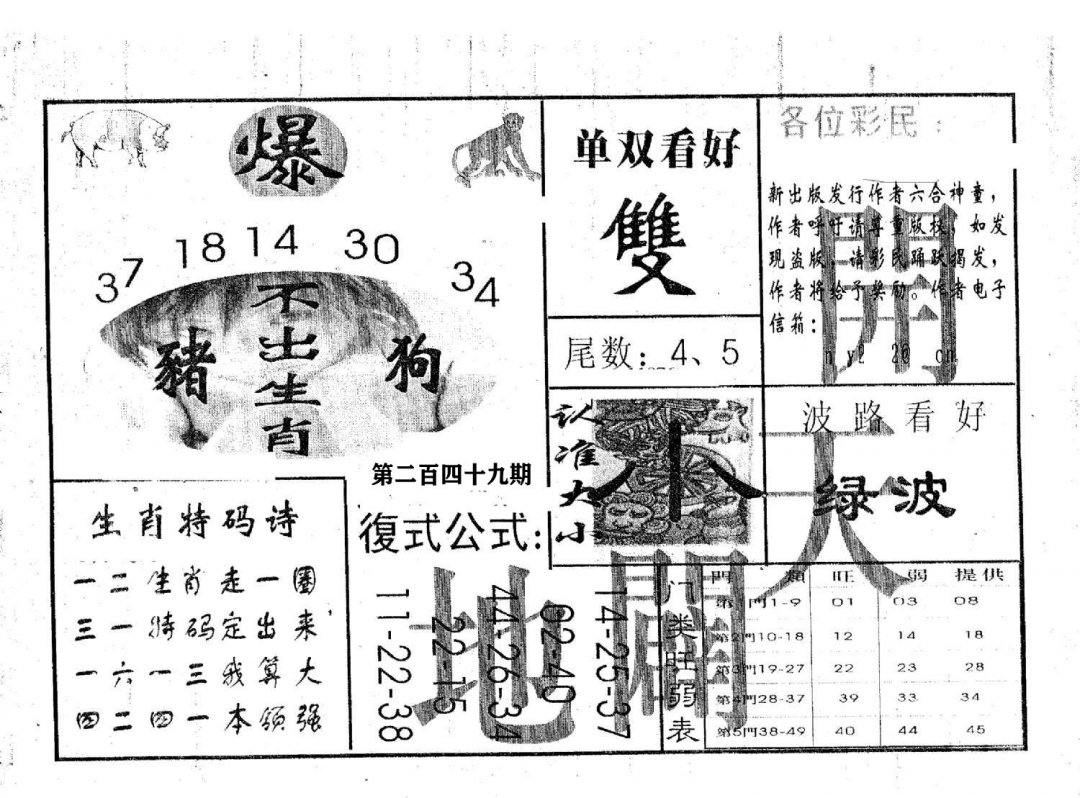 爆
37 18 14 30 34
不出生肖
豬
狗
第二百四十九期
生肖特码诗
一二生肖走一圈
三一特码定出来
一六一三我算大
四二四一本领强
復式公式:
11-22-38
22-15
44-26-34
02-40
14-25-37
单双看好
雙
尾数: 4、5
认准大小
小
各位彩民:
新出版发行作者六合神童,
作者呼吁请尊重版权,如发
现盗版,请彩民踊跃揭发,
作者将给予奖励。作者电子
信箱:
波路看好
绿波
天
地
開
開
门类旺弱表
門 類 旺 弱 提供
第1門1-9 01 03 08
第2門10-18 12 14 18
第3門19-27 22 23 28
第4門28-37 39 33 34
第5門38-49 40 44 45